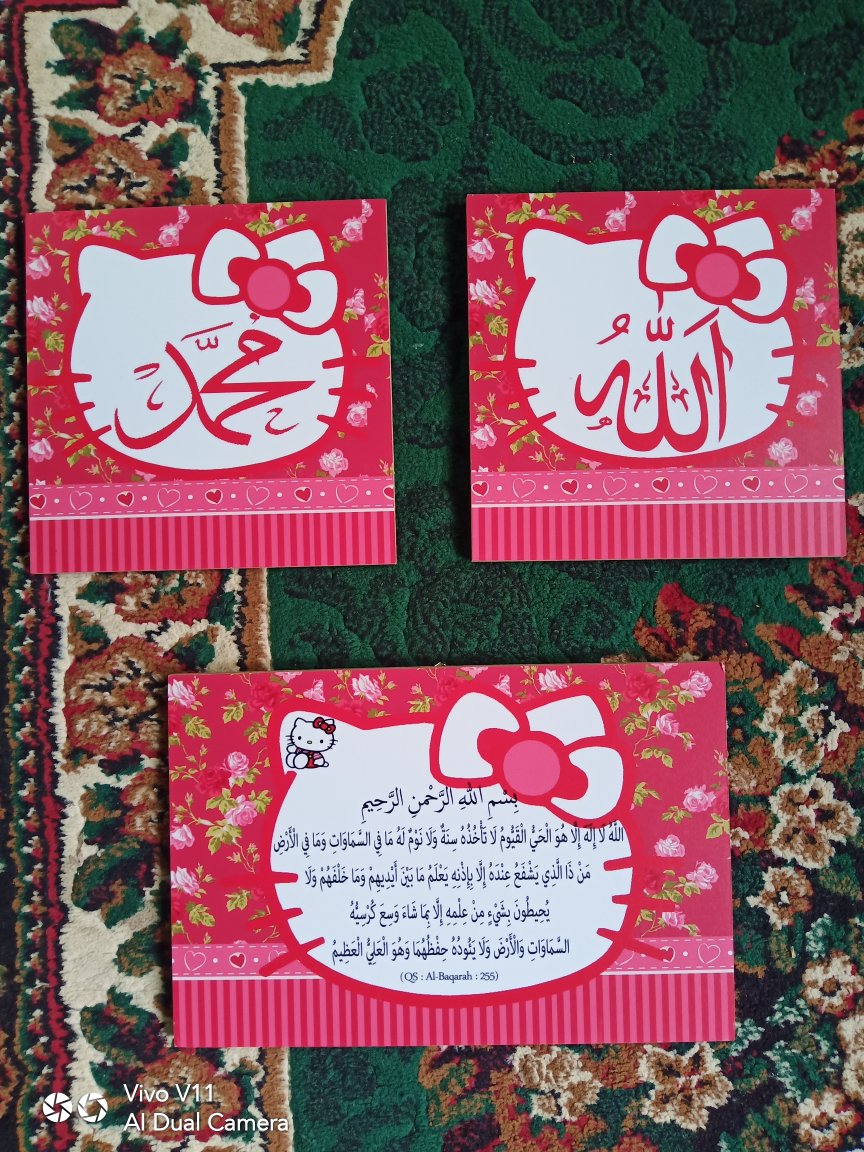 محمد
الله
بِسْمِ اللهِ الرَّحْمٰنِ الرَّحِيمِ
اللَّهُ لَا إِلَهَ إِلَّا هُوَ الْحَيُّ الْقَيُّومُ لَا تَأْخُذُهُ سِنَةٌ وَلَا نَوْمٌ لَهُ مَا فِي السَّمَاوَاتِ وَمَا فِي الْأَرْضِ
مَنْ ذَا الَّذِي يَشْفَعُ عِنْدَهُ إِلَّا بِإِذْنِهِ يَعْلَمُ مَا بَيْنَ أَيْدِيهِمْ وَمَا خَلْفَهُمْ وَلَا
يُحِيطُونَ بِشَيْءٍ مِنْ عِلْمِهِ إِلَّا بِمَا شَاءَ وَسِعَ كُرْسِيُّهُ
السَّمَاوَاتِ وَالْأَرْضَ وَلَا يَئُودُهُ حِفْظُهُمَا وَهُوَ الْعَلِيُّ الْعَظِيمُ
(QS : Al-Baqarah : 255)
Vivo V11
AI Dual Camera